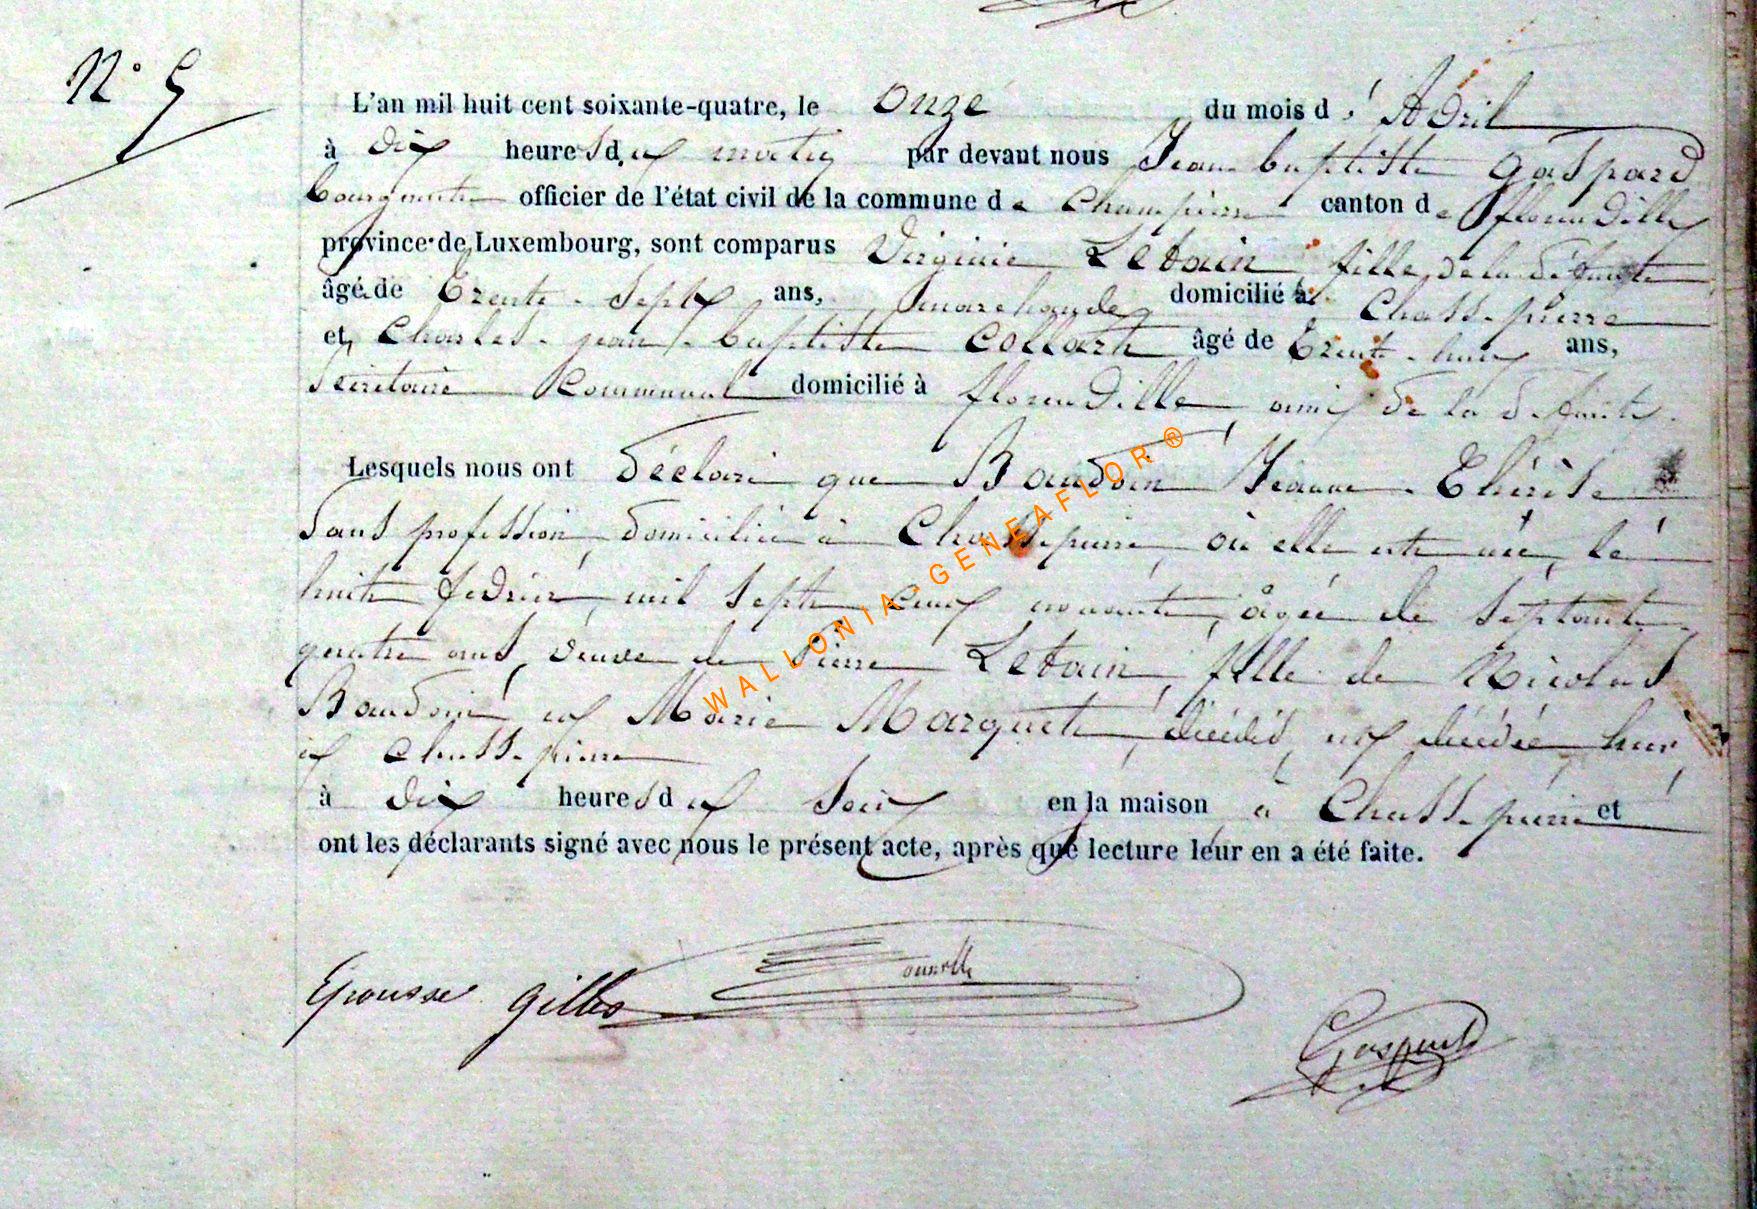 N° 5
L'an mil huit cent soixante-quatre, le onze du mois d'Avril
à dix heures du matin par devant nous Jean baptiste Gaspard
bourgmestre officier de l'état civil de la commune de Chassepierre canton de florenville
province de Luxembourg, sont comparus Virginie Lebain, fille de la défunte
âgé de trente-sept ans, marchande domicilié à Chassepierre
et Charles-jean-baptiste Collart âgé de trente-huit ans,
secrétaire communal domicilié à florenville, ami de la défunte.
Lesquels nous ont déclaré que Baudoin Jeanne-Thérèse
sans profession, domiciliée à Chassepierre, où elle est née, le
huit février, mil sept cent nonante, âgée de septante
quatre ans, veuve de Pierre Lebain, fille de Nicolas
Baudoin, et Marie Marquet, décédés, est décédée hier
à Chassepierre
à dix heures du soir en la maison à Chassepierre et
ont les déclarants signé avec nous le présent acte, après que lecture leur en a été faite.
Epousse gilles
Gaspard
WALLONIA-GENEAFLOR ®